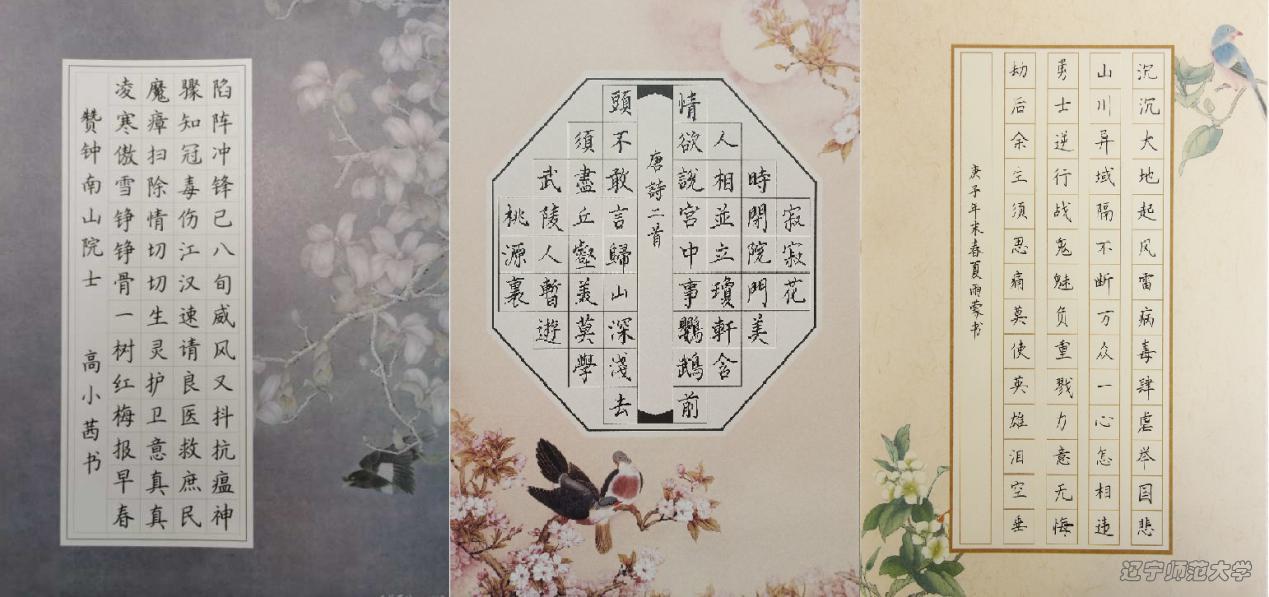 陷阵冲锋已八旬威风又抖抗瘟神
骤知冠毒伤江汉速请良医救庶民
魔瘴扫除情切切生灵护卫意真真
凌寒傲雪铮铮骨一树红梅报早春
赞钟南山院士 高小茜书
寂寂花
時閉院門美
人相並立瓊軒含
情欲說宮中事鸚鵡前
唐詩二首
頭不敢言歸山深淺去
須盡丘壑美莫學
武陵人暫遊
桃源裏
沉沉大地起风雷病毒肆虐举国悲
山川异域隔不断万众一心怎相违
勇士逆行战鬼魅负重戮力意无悔
劫后余生须忍痛莫使英雄泪空垂
庚子年末春夏雨蒙书
辽宁师范大学